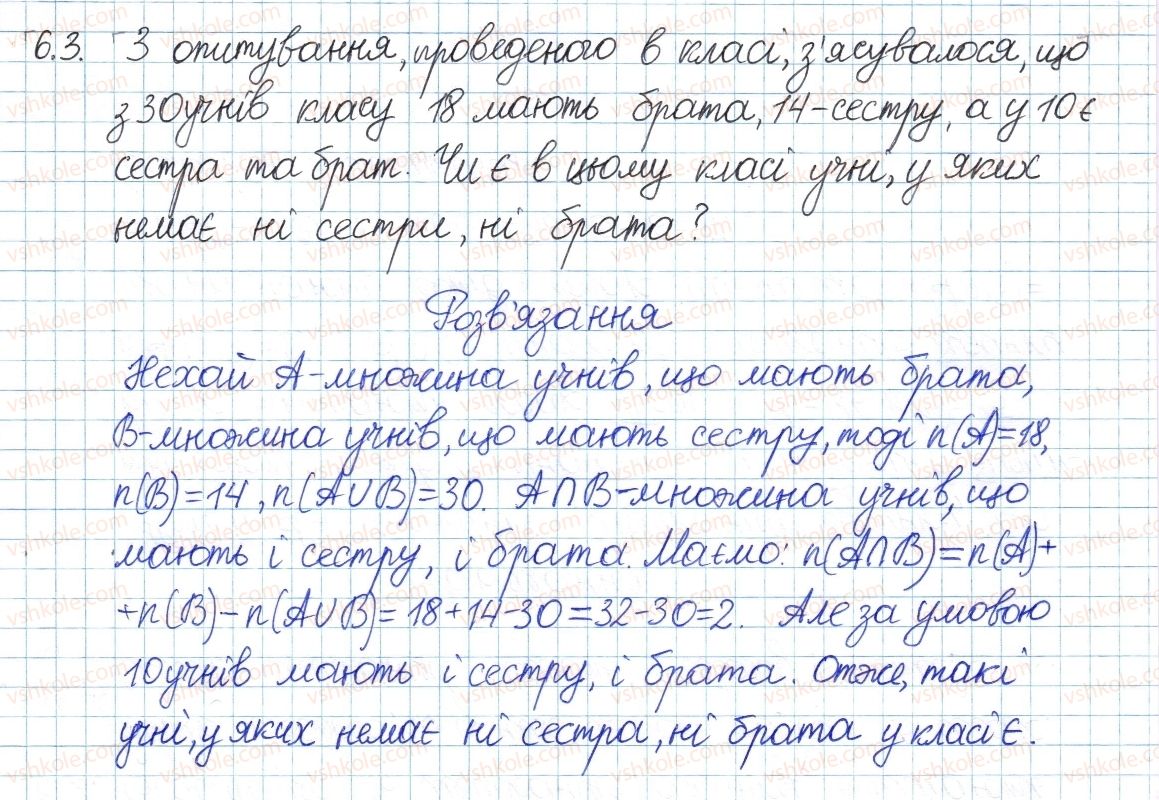 6.3. З опитування, проведеного в класі, з'ясувалося, що
з 30 учнів класу 18 мають брата, 14 - сестру, а у 10 є
сестра та брат. Чи є в цьому класі учні, у яких
немає ні сестри, ні брата?
Розв'язання
Нехай A - множина учнів, що мають брата,
B - множина учнів, що мають сестру, тоді n(A)=18,
n(B)=14, n(A∪B)=30. A∩B - множина учнів, що
мають і сестру, і брата. Маємо: n(A∩B)=n(A)+
+n(B)-n(A∪B)=18+14-30=32-30=2. Але за умовою
10 учнів мають і сестру, і брата. Отже, такі
учні, у яких немає ні сестра, ні брата у класі є.